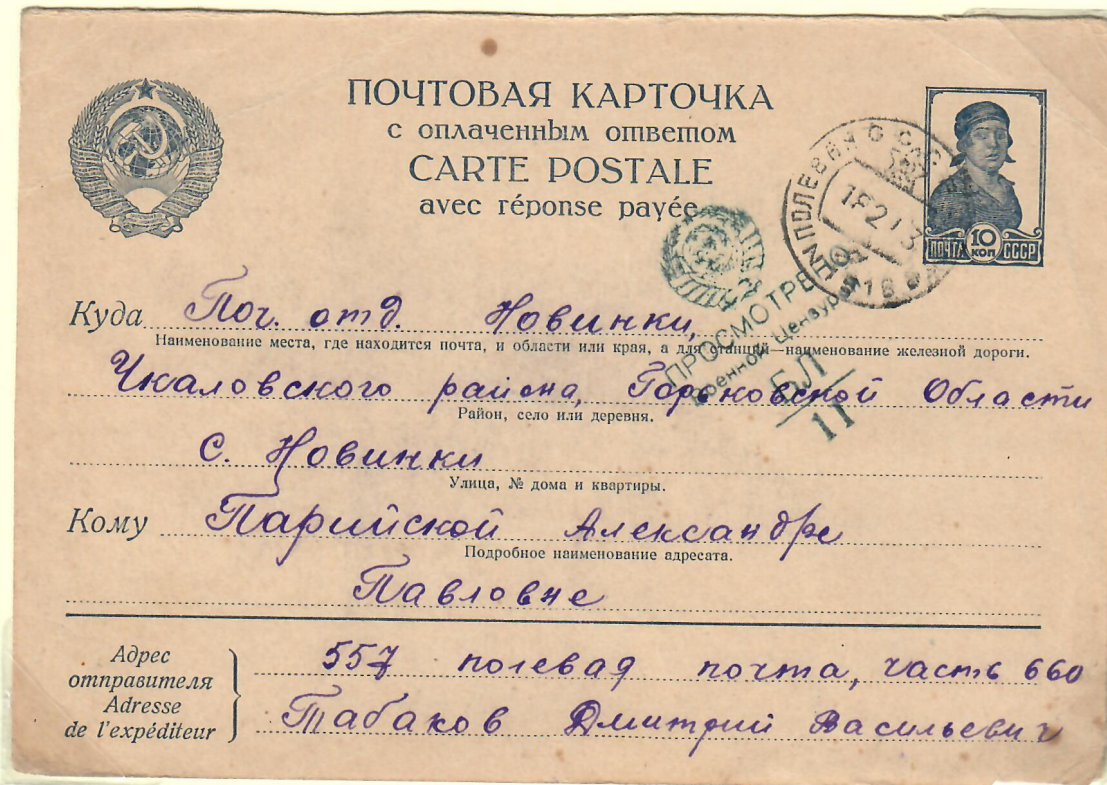 ПОЧТОВАЯ КАРТОЧКА
с оплаченным ответом
CARTE POSTALE
avec réponse payée
ПОЧТА 10 КОП СССР
ПОЛЕВАЯ
ПРОСМОТРЕ
Военной Цензурой
БЛ
11
Куда Поч. отд. Новинки,
Наименование места, где находится почта, и области или края, а для станций—наименование железной дороги.
Чкаловского района, Горьковской Области
Район, село или деревня.
с. Новинки
Улица, № дома и квартиры.
Кому Парийской Александре
Подробное наименование адресата.
Павловне
Адрес отправителя
Adresse de l'expéditeur
557 полевая почта, часть 660
Табаков Дмитрий Васильевич